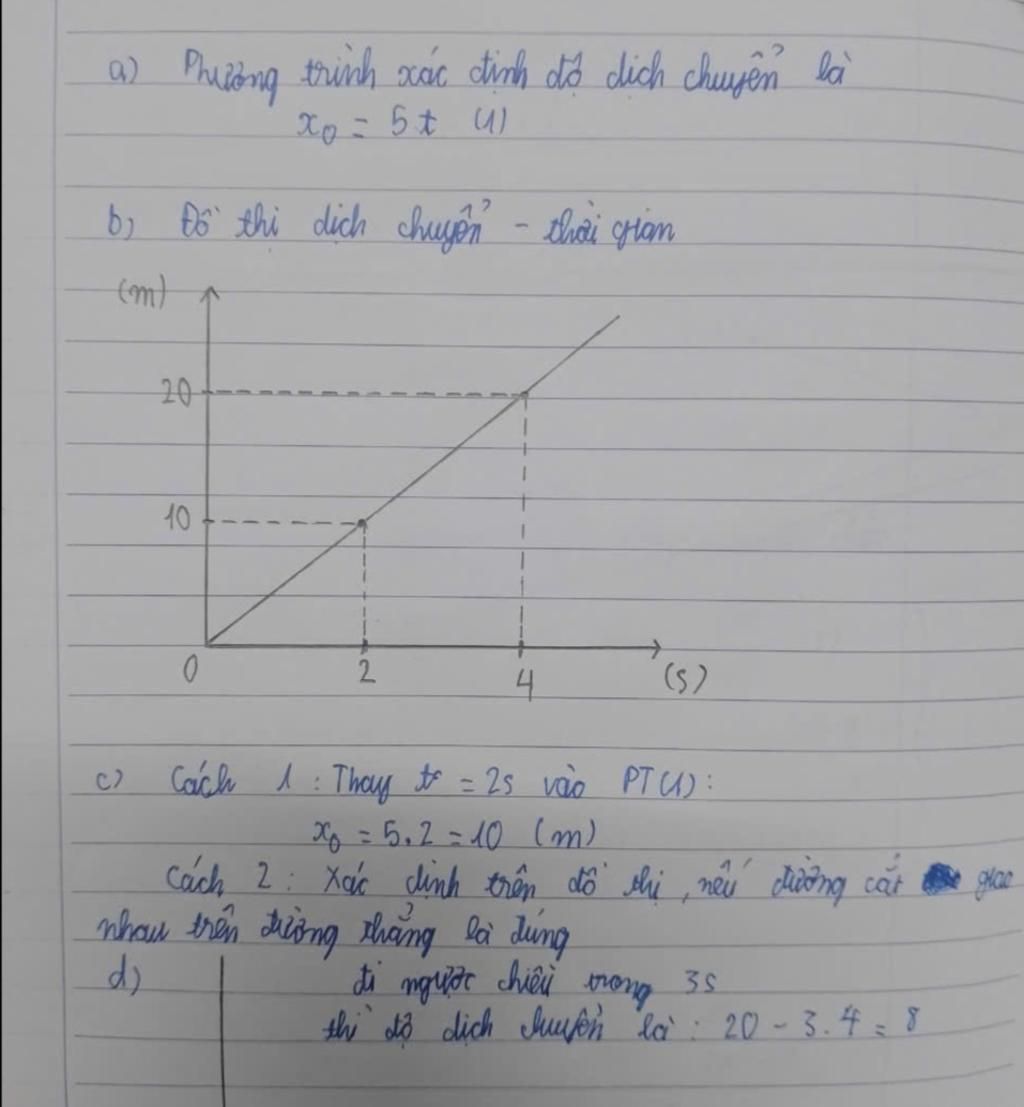 a) Phương trình xác định độ dịch chuyển là
x₀ = 5.t (1)
b) Đồ thị dịch chuyển - thời gian
(m)
20
10
0 2 4 (s)
c) Cách 1 : Thay t = 2s vào PT(1) :
x₀ = 5.2 = 10 (m)
Cách 2 : Xác định trên đồ thị, nếu đường cắt giao
nhau trên đường thẳng là đúng
d) đi ngược chiều trong 3s
thì độ dịch chuyển là : 20 - 3.4 = 8